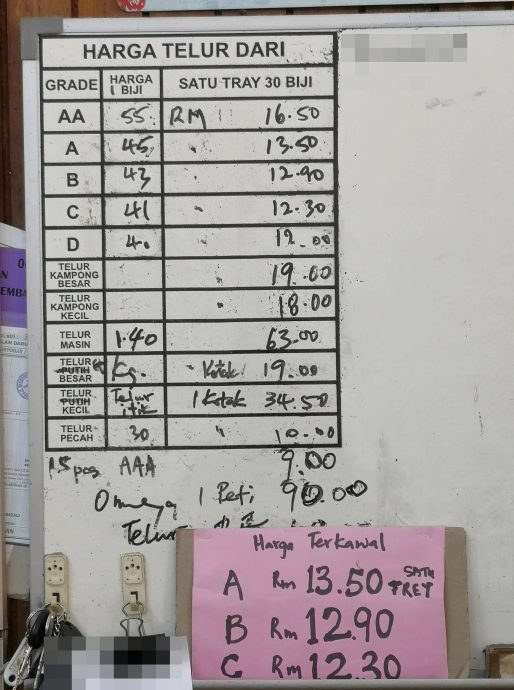 HARGA TELUR DARI
GRADE HARGA 1 BIJI SATU TRAY 30 BIJI
AA 55 RM 16.50
A 45 " 13.50
B 43 " 12.90
C 41 " 12.30
D 40 12.00
TELUR KAMPONG BESAR " 19.00
TELUR KAMPONG KECIL " 18.00
TELUR MASIN 1.40 63.00
TELUR PUTIH BESAR Kg. Kotak 19.00
TELUR PUTIH KECIL Telur itik 1 Kotak 34.50
TELUR PECAH 30 " 10.00
15 pcs AAA 9.00
Omega 1 Peti 90.00
Telur
Harga Terkawal
A Rm 13.50 SATU TREY
B Rm 12.90
C Rm 12.30